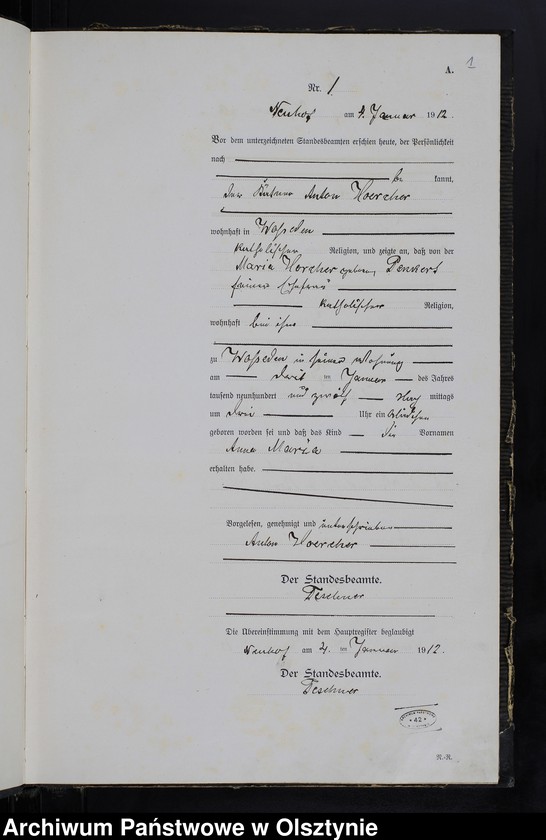 1
A.
Nr. 1
Neuhof am 4. Januar 1912.
Vor dem unterzeichneten Standesbeamten erschien heute, der Persönlichkeit
nach
be kannt,
der Käthner Anton Hoercher
wohnhaft in Woßeden
katholischer Religion, und zeigte an, daß von der
Maria Horcher geborenen Penkert
seiner Ehefrau
katholischer Religion,
wohnhaft bei ihm
zu Woßeden in seiner Wohnung
am drit im Januar des Jahres
tausend neunhundert und zwölf mittags
um drei Uhr ein Mädchen
geboren worden sei und daß das Kind die Vornamen
Anna Maria
erhalten habe.
Vorgelesen, genehmigt und unterschrieben
Anton Hoercher
Der Standesbeamte.
Teschner
Die Übereinstimmung mit dem Hauptregister beglaubigt
Neuhof am 4. im Januar 1912.
Der Standesbeamte.
Teschner
42
R.-R.
Archiwum Państwowe w Olsztynie